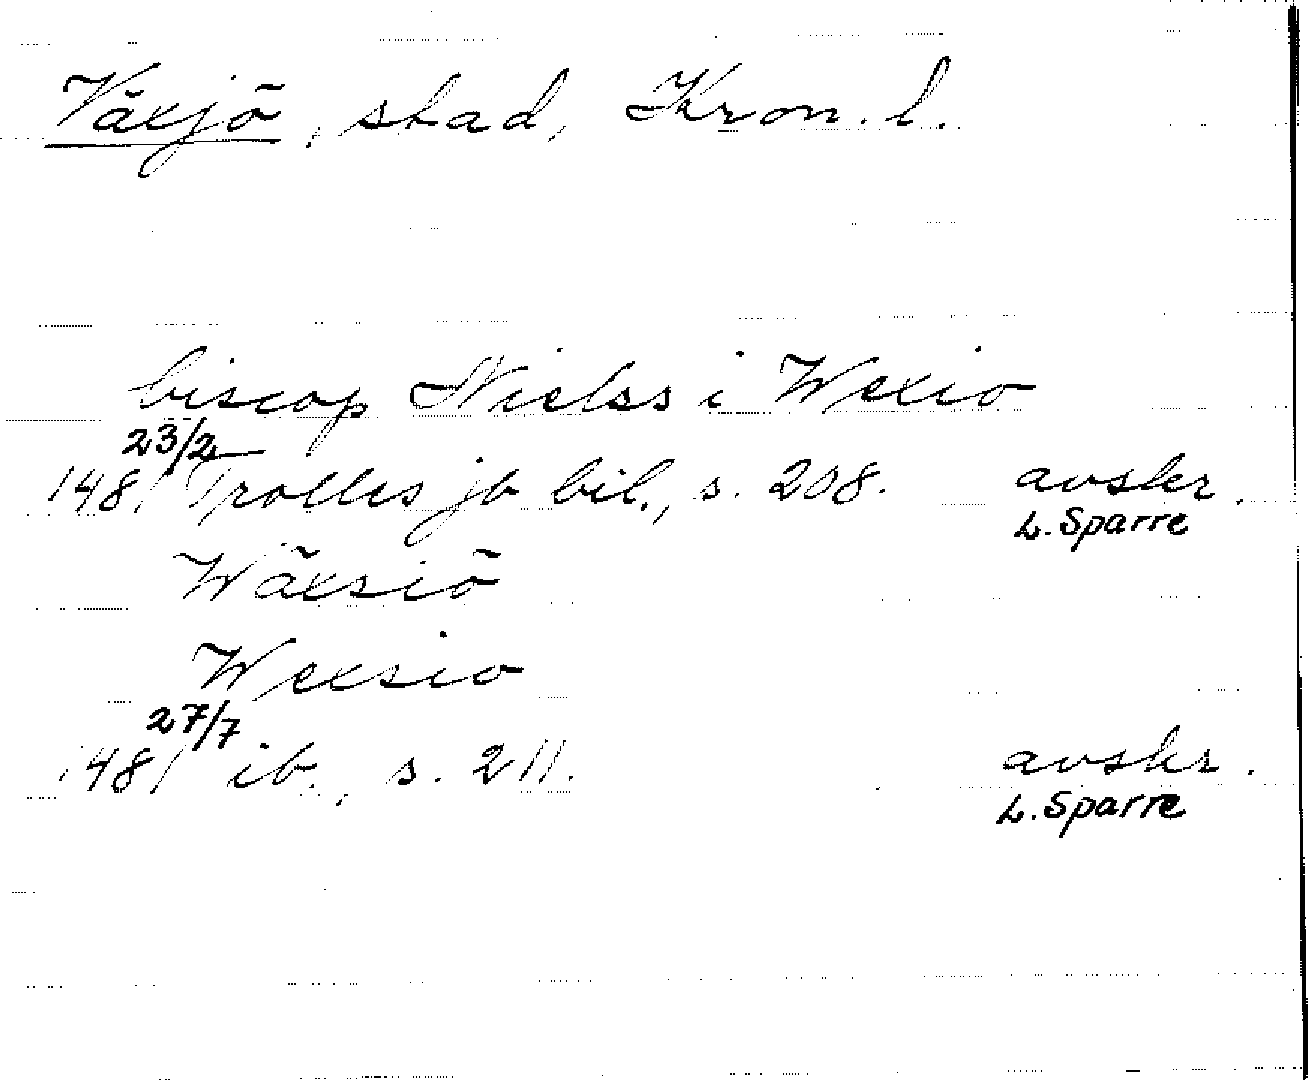 Växjö, stad, Kron. l.
biscop Nielss i Wexio
23/2
1481 Trolles jb bil., s. 208. avskr.
L. Sparre
Wäxsiö
Wexsio
27/7
1481 ib., s. 211. avskr.
L. Sparre